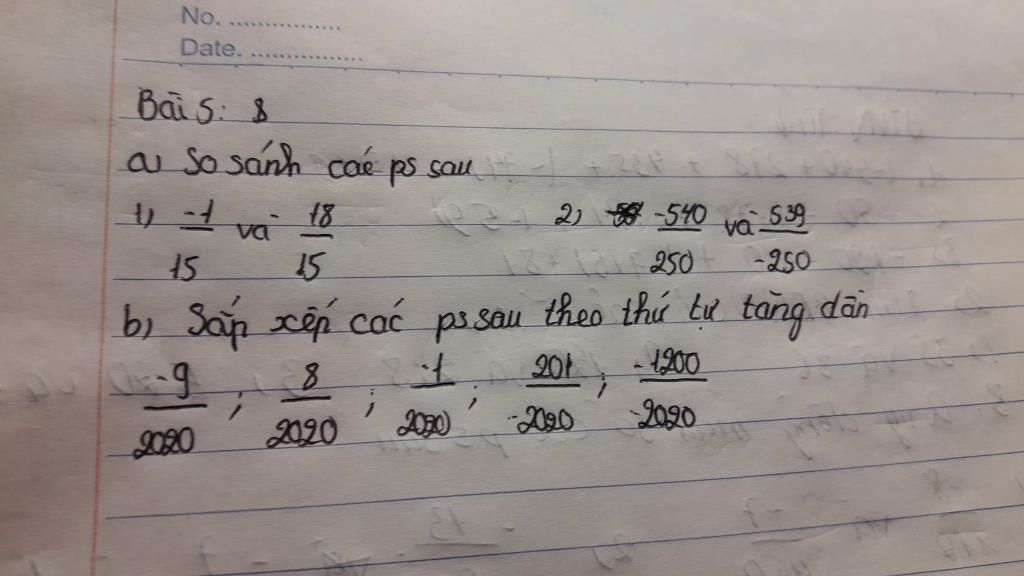 No. ................
Date. ................
Bài 5: 8
a) So sánh các ps sau
1) -1/15 và 18/15 2) -540/250 và 539/-250
b) Sắp xếp các ps sau theo thứ tự tăng dần
-9/2020 ; 8/2020 ; -1/2020 ; 201/-2020 ; -1200/-2020